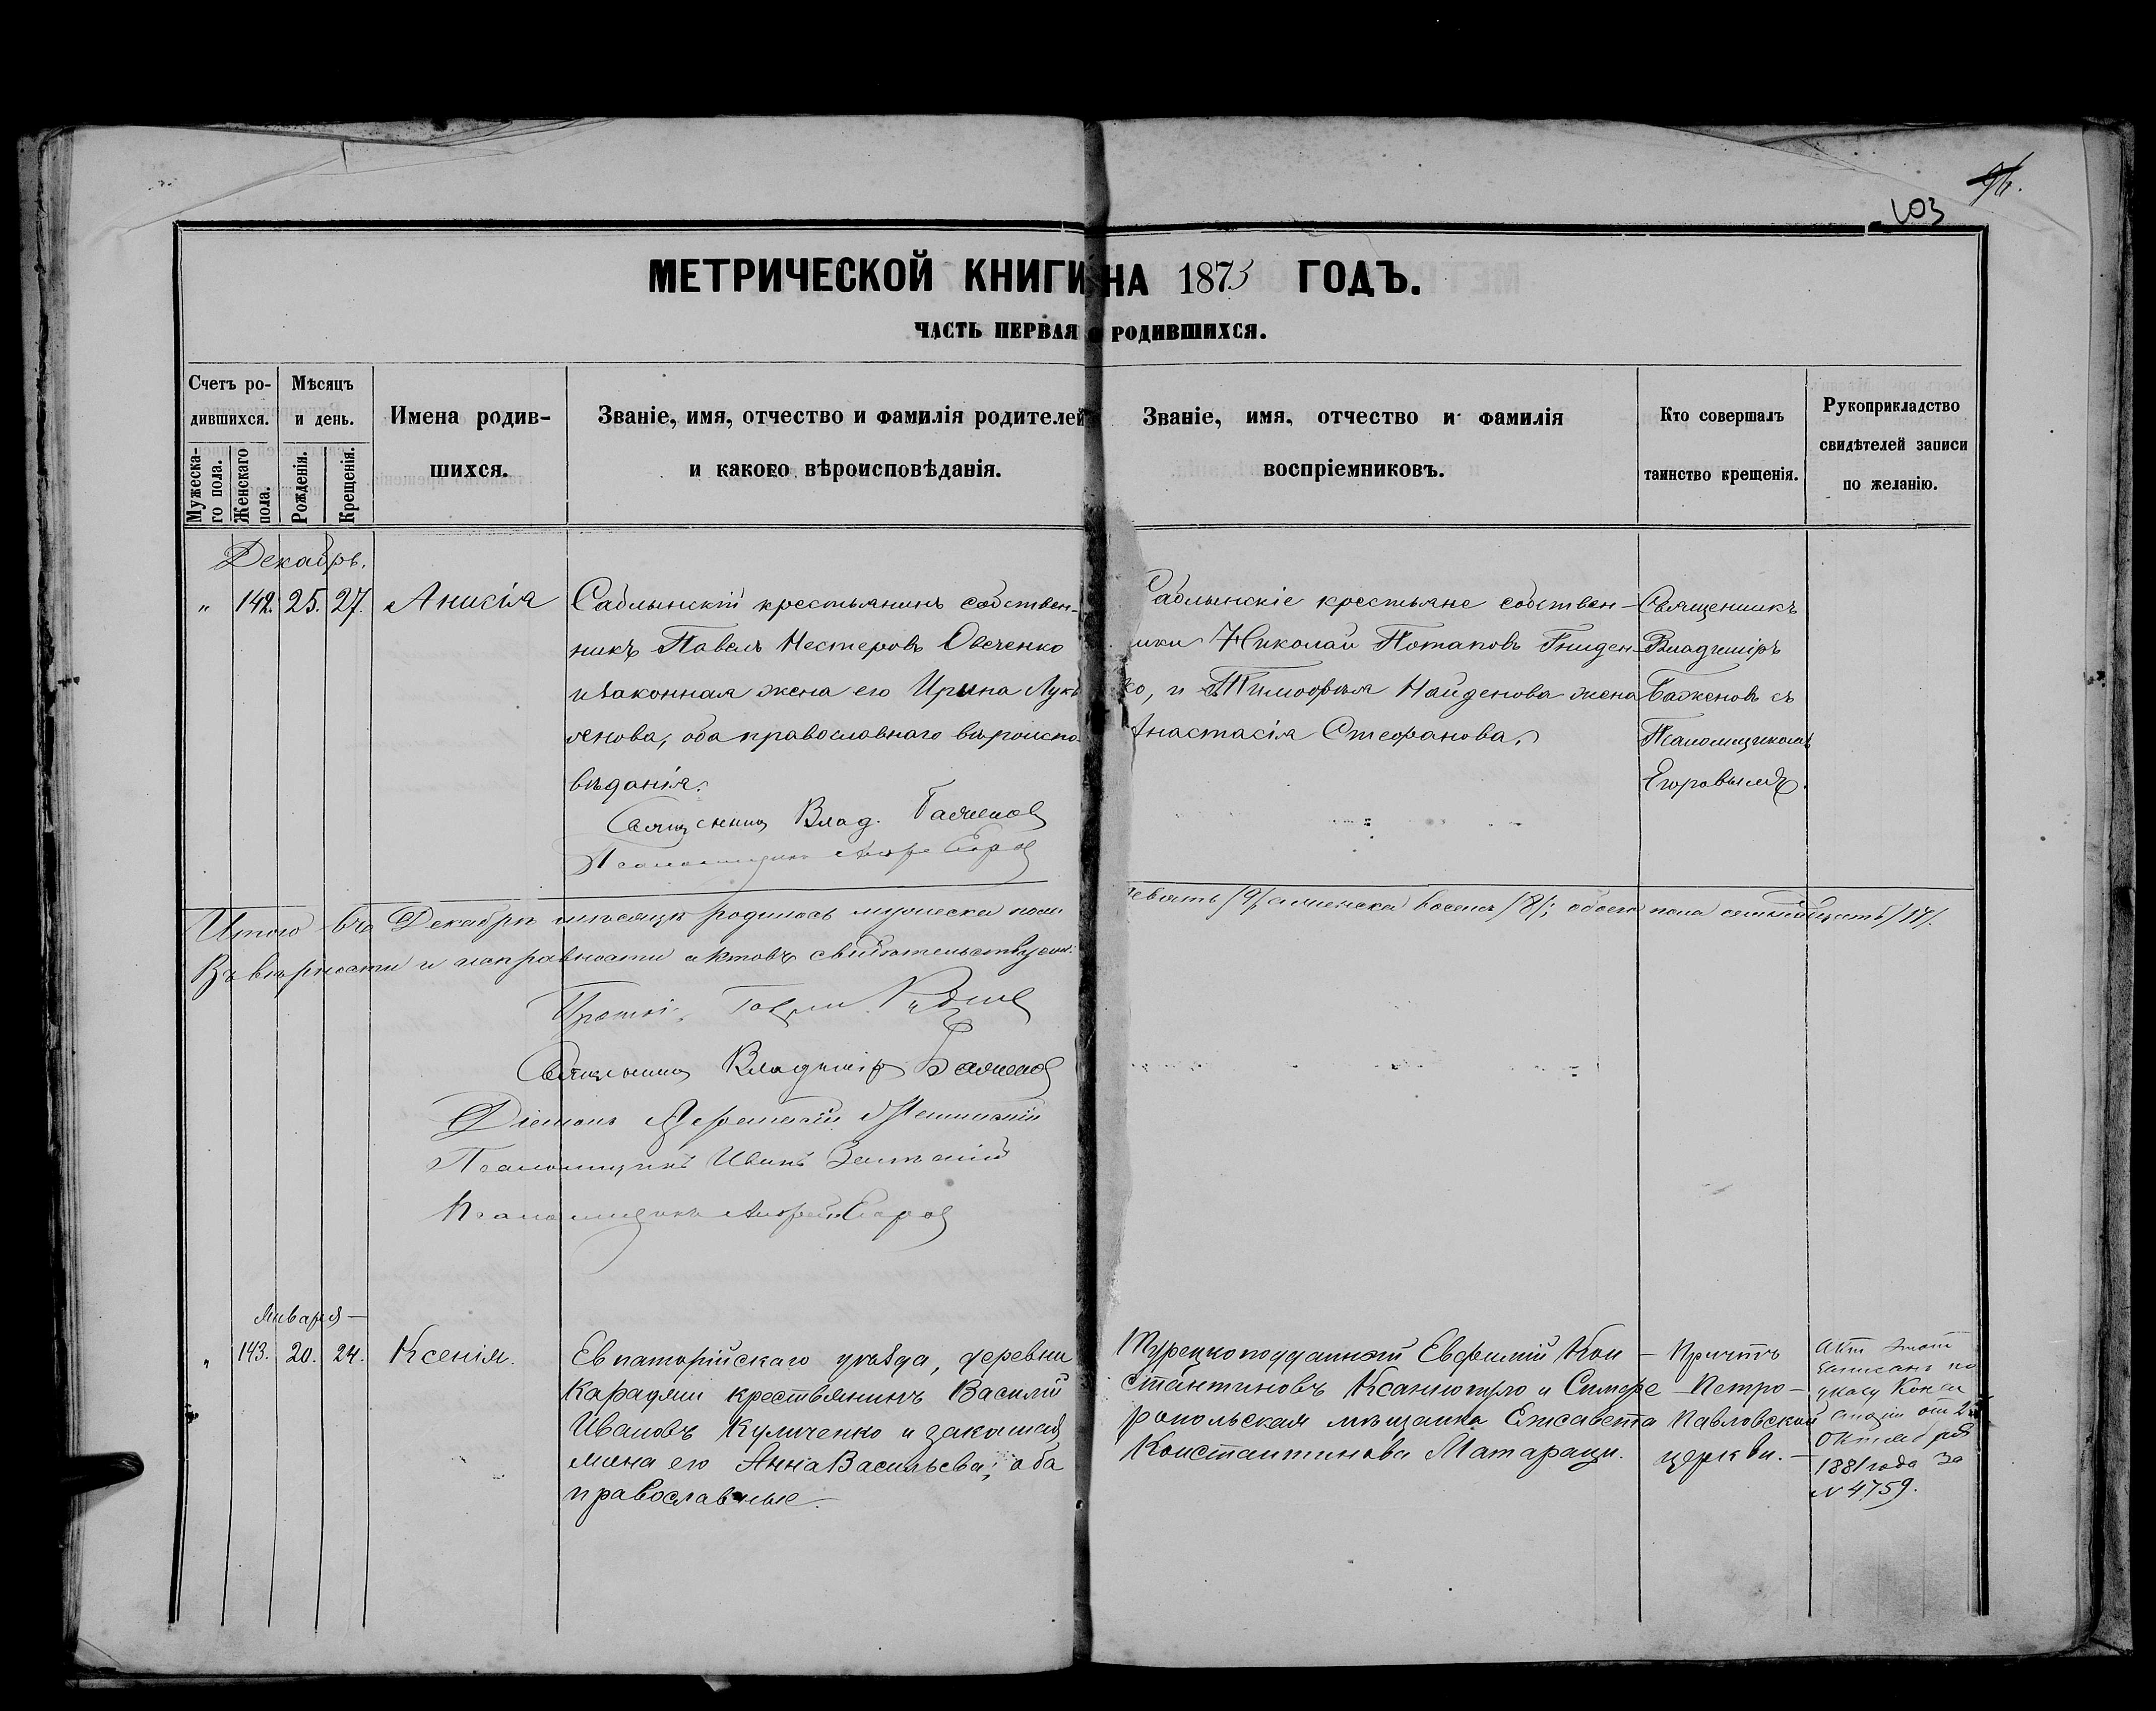 96.
103
МЕТРИЧЕСКОЙ КНИГИ НА 1873 ГОДЪ.
ЧАСТЬ ПЕРВАЯ О РОДИВШИХСЯ.
Счетъ ро-
дившихся.
Мужеска-
го пола.
Женскаго
пола.
Мѣсяцъ
и день.
Рожденія.
Крещенія.
Имена родив-
шихся.
Званіе, имя, отчество и фамилія родителей
и какого вѣроисповѣданія.
Званіе, имя, отчество и фамилія
воспріемниковъ.
Кто совершалъ
таинство крещенія.
Рукоприкладство
свидѣтелей записи
по желанію.
Декабрь.
" 142. 25. 27. Анисія
Саблынскій крестьянинъ собствен-
никъ Павелъ Нестеровъ Овсченко
и законная жена его Ирина Лукь
янова, оба православнаго вѣроиспо-
вѣданія.
Саблынскіе крестьяне собствен-
ики Николай Потаповъ Гниден-
ко, и Тимоѳея Найденова жена
Анастасія Стефанова.
Священникъ
Владиміръ
Баженовъ съ
Псаломщикомъ
Егоровымъ.
Священникъ Влад. Баженовъ
Псаломщикъ Андрей Егоров
Итого въ Декабрѣ мѣсяцѣ родилось мужеска пола
девять /9/, а женска восемь /8/; обоего пола семнадцать /17/.
Въ вѣрности и исправности актовъ свидѣтельствуемъ:
Священникъ Владиміръ Баженовъ
Діаконъ
Псаломщикъ Иванъ
Псаломщикъ Андрей Егоров
Января —
" 143. 20. 24. Ксенія.
Евпаторійскаго уѣзда, деревни
Караджи крестьянинъ Василій
Ивановъ Куличенко и законная
жена его Анна Васильева; оба
православные.
Турецкоподданный Евфимій Кон-
стантиновъ и Симфе-
ропольская мѣщанка Елисавета
Константинова Матараци.
Причтъ
Петро-
Павловской
церкви. —
Актъ этотъ
записанъ по
указу Конси
сторіи отъ
Октября
1881 года за
№ 4759.